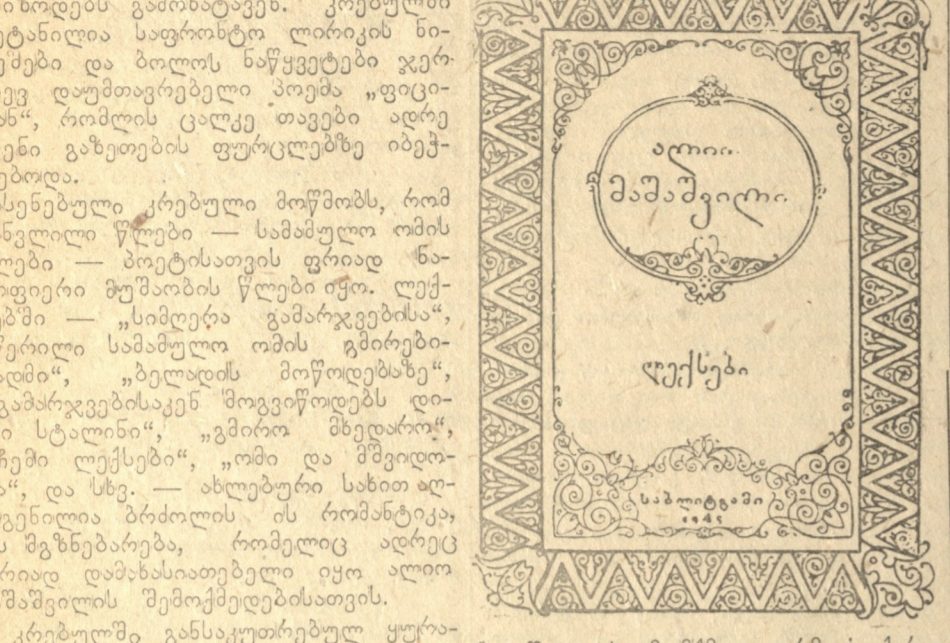 გამოხატავენ. კრებულში
საფრონტო ლირიკის ნი-
და ბოლოს ნაწყვეტები ჯერ-
დაუმთავრებელი პოემა „ფიცი-
რომლის ცალკე თავები ადრე
გაზეთების ფურცლებზე იბეჭ-
კრებული მოწმობს, რომ
წლები — სამამულო ომის
— პოეტისათვის ფრიად ნა-
მუშაობის წლები იყო. ლექ-
— „სიმღერა გამარჯვებისა“,
სამამულო ომის გმირები-
„ბელადის მოწოდებაზე“,
მოგვიწოდებს დი-
სტალინი“, „გმირო მხედარო“,
ლექსები“, „ომი და მშვიდო-
და სხვ. — ახლებური სახით აღ-
ბრძოლის ის რომანტიკა,
მგზნებარება, რომელიც ადრეც
დამახასიათებელი იყო ალიო
შემოქმედებისათვის.
კრებულში განსაკუთრებულ ყურა-
ალიო
მაშაშვილი
ლექსები
საბლიტგამი
1945